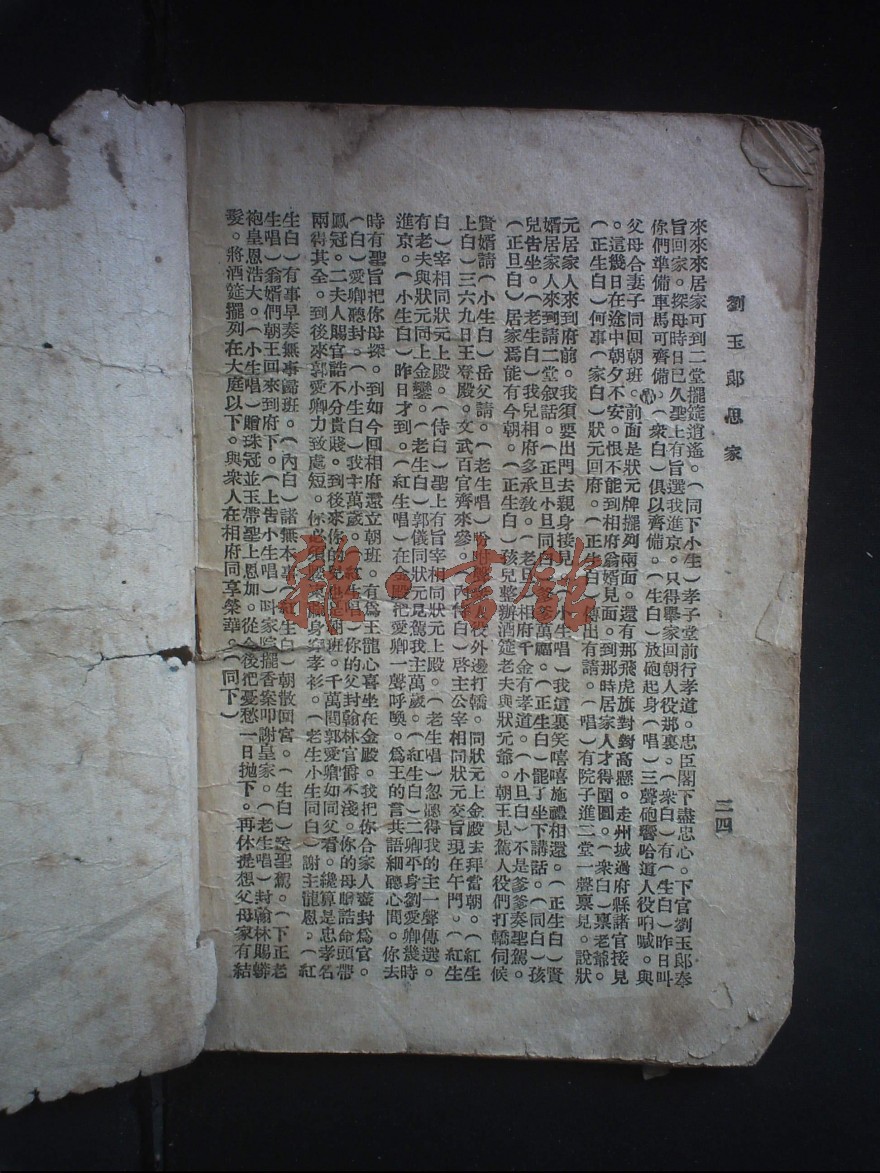 劉玉郎思家
三四
來來來居家可到二堂擺筵逍遙。（同下小生）孝子堂前行孝道。忠臣閣下盡忠心。下官劉玉郎奉
旨回家。探母時日已久聖上有旨選我進京。只得舉家回朝人役那裏。（衆白）有（生白）昨日叫
你們準備車馬可齊備。（衆白）俱以齊備。（生白）放砲起身（唱）三聲砲響哈道人役吶喊。與
父母合妻子同回朝班。前面是狀元牌擺列兩面。還有那飛虎旗對對高懸。走州城過府縣諸官接見
。這幾日在途中朝夕不安。恨不能到相府翁婿見面。到那時居家人才得團圓。（衆白）禀老爺。
（正生白）何事（家白）狀元回府。（正生白）傳出有請。（唱）有院子進二堂一聲禀見。說狀
元居家人來到府前。我須要出門去親身接見（小生唱）我這裏笑嘻嘻施禮相還。（正生白）賢
婿居家人來到請二堂叙話。（正旦小旦同白）爹爹萬福。（正生白）罷了坐下講話。（同白）孩
兒告坐。（老生白）我兒相府多承敎。（老旦白）相府千金有孝道。（小旦白）不是爹爹奏聖駕。
（正旦白）居家焉能有今朝。（正生白）孩兒整辦酒筵老夫與狀元爺。朝王見駕人役們打轎伺候
賢婿請（小生白）岳父請。（老生唱）吩咐人役外邊打轎。同狀元上金殿去拜當朝。（紅生
上白）三六九日王登殿。文武百官齊來參。（內侍白）啓主公宰相同狀元交旨現在午門。（紅生
白）宰相同狀元上殿。（侍白）聖上有旨宰相同狀元上殿。（老生唱）忽聽得我的主一聲傳選。
有老夫與狀元同上金鑾。（老生白）郭儀同狀元見駕我主萬歲。（紅生白）二卿平身劉愛卿幾時
進京。（小生白）昨日才到。（紅生唱）在金殿把愛卿一聲呼喚。爲王的言共語細聽心間。你去
時有聖旨把你母探。到如今回相府還立朝班。有爲王龍心喜坐在金殿。我把你合家人蓋封爲官。
（白）愛卿聽封。（小生白）我主萬歲。（紅生唱）你的父封翰林官爵不淺。你的母贈誥命頭帶
鳳冠。二夫人賜官誥不分貴賤。到後來你的兒也是朝班。千萬間郭愛卿如同父看。纔算是忠孝名
兩得其全。到後來郭愛卿力致處短。你必須身穿孝衫。（老生小生同白）謝主龍恩。（紅
生白）有事早奏無事歸班。（內白）諸無本奏（紅生白）朝散回宮。（生白）送聖駕。（下正老
生唱）翁婿們朝王回來到府下。（上告小生唱）叫家院擺香案叩謝皇家。（老生唱）封翰林賜蟒
袍皇恩浩大。（小生唱）贈珠冠並玉帶聖上恩加。從今後把憂愁一日拋下。再休提想父母家有結
髮。將酒筵擺列在大庭以下。與衆人在相府同享榮華。（同下）
雜·書館